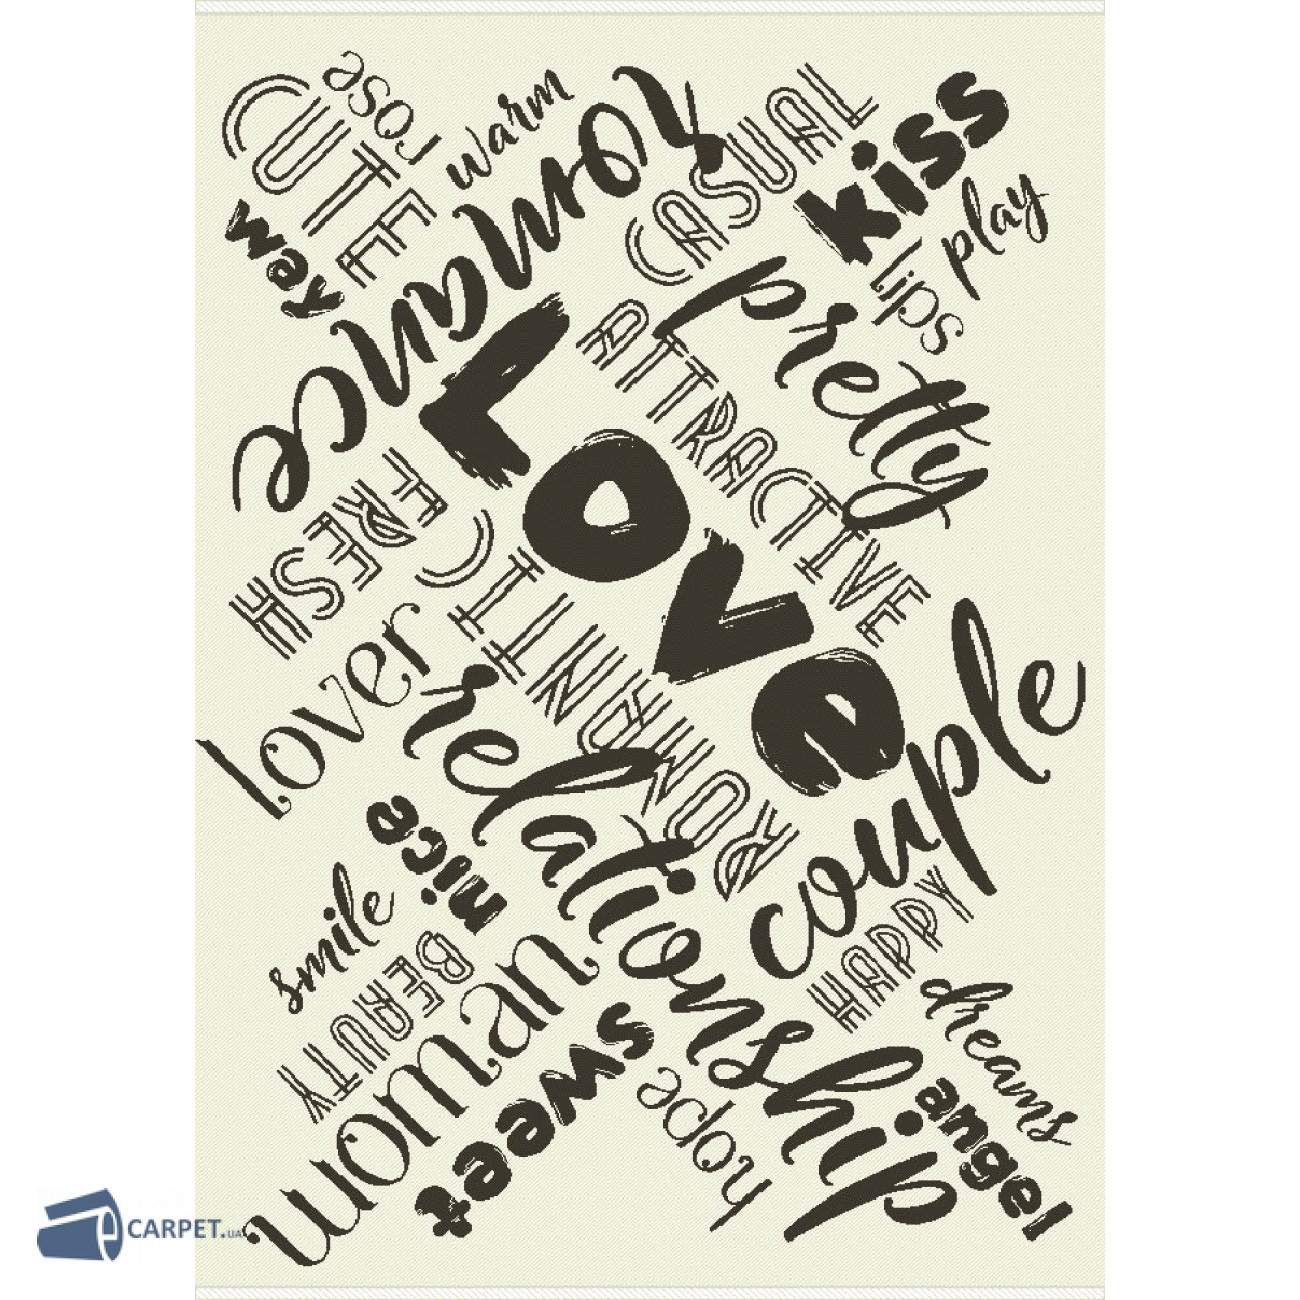 CUTE
rose
warm
way
romance
CASUAL
kiss
play
lips
pretty
ATTRACTIVE
Love
FRESH
ROMANTIC
lover
relationship
couple
HAPPY
nice
smile
BEAUTY
woman
sweet
adoy
dreams
angel
eCARPET.UA